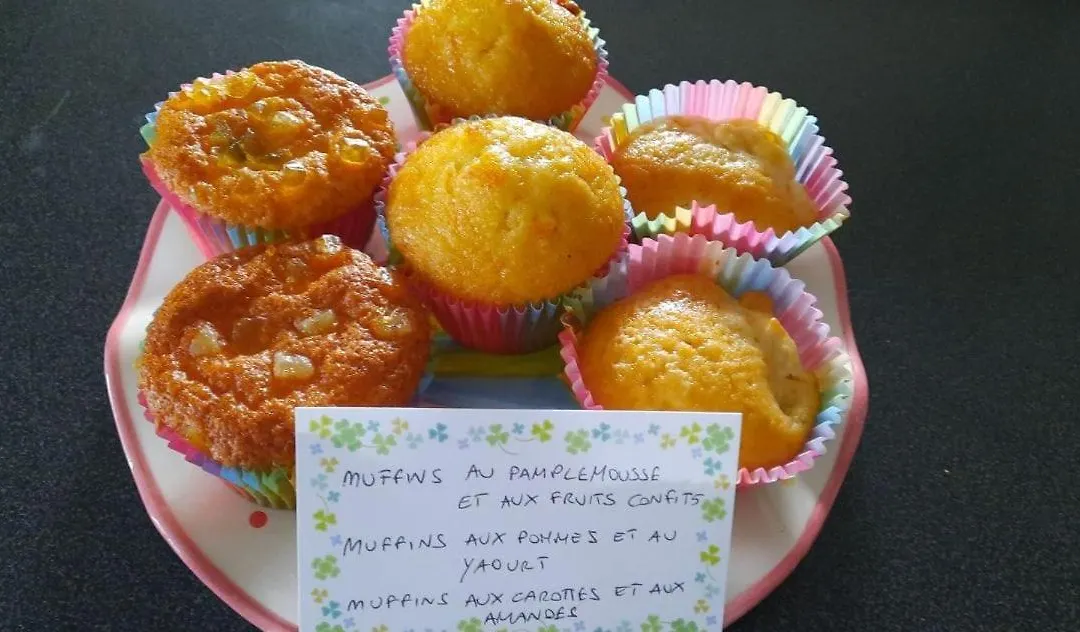 MUFFINS AU PAMPLEMOUSSE
ET AUX FRUITS CONFITS
MUFFINS AUX POMMES ET AU
YAOURT
MUFFINS AUX CAROTTES ET AUX
AMANDES